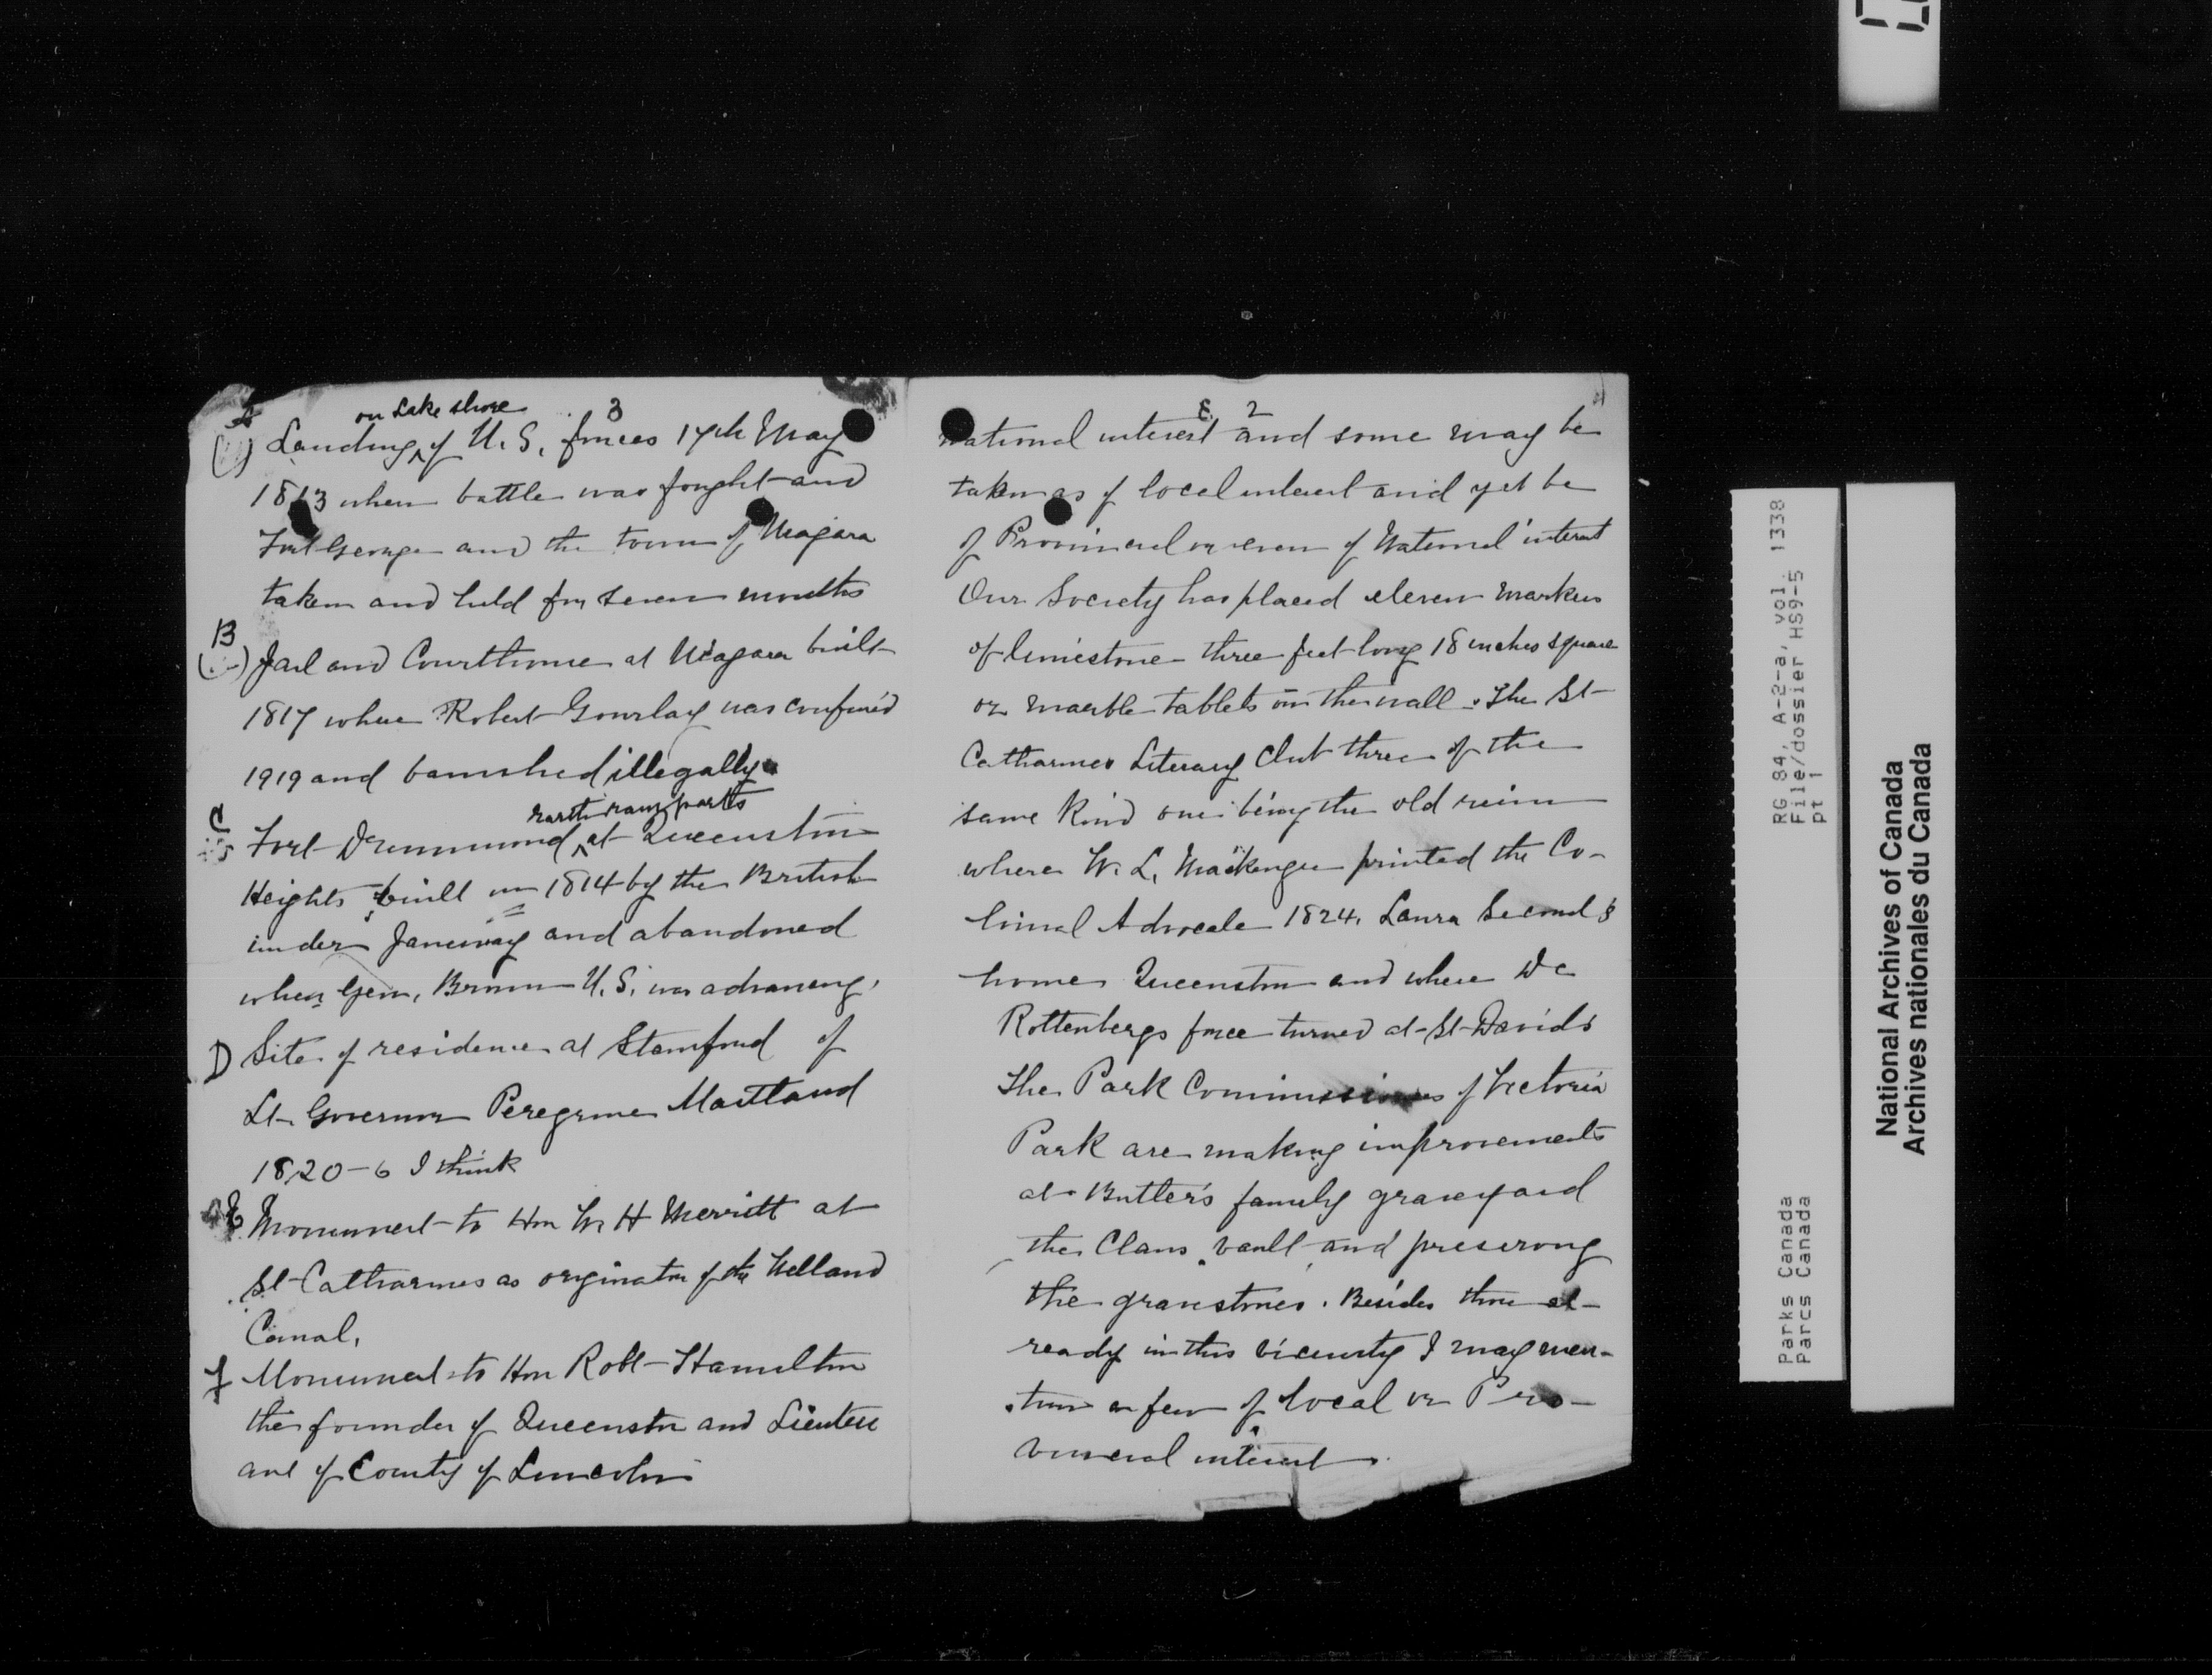 3
on Lake shore
A
(1) Landing of U. S. forces 17th May
1813 when battle was fought and
Fort George and the town of Niagara
taken and held for seven months
B
Jail and Courthouse at Niagara built
1817 where Robert Gourlay was confined
1919 and banished illegally
earth ramparts
C
Fort Drummond at Queenston
Heights built in 1814 by the British
under Janeway and abandoned
when Gen. Brown U. S. was advancing.
D Site of residence at Stamford of
Lt Governor Peregrine Maitland
1820-6 I think
E Monument to Hon W. H Merritt at
St Catharines as originator of the Welland
Canal.
f Monument to Hon Robt Hamilton
the founder of Queenston and Lieuten
ant of County of Lincoln
2
national interest and some may be
taken as of local interest and yet be
of Provincial or even of National interest
Our Society has placed eleven markers
of limestone three feet long 18 inches square
or marble tablets on the wall. The St
Catharines Literary Club three of the
same kind one being the old ruin
where W. L. Mackenzie printed the Co-
lonial Advocate 1824. Laura Secord's
home Queenston and where De
Rottenbergs force turned at St Davids
The Park Commissioners of Victoria
Park are making improvements
at Butler's family graveyard
the Claus vault and preserving
the gravestones. Besides those al-
ready in this vicinity I may men-
tion a few of local or Pro-
vincial interest.
RG 84, A-2-a, vol. 1338
File/dossier HS9-5
pt 1
Parks Canada
Parcs Canada
National Archives of Canada
Archives nationales du Canada